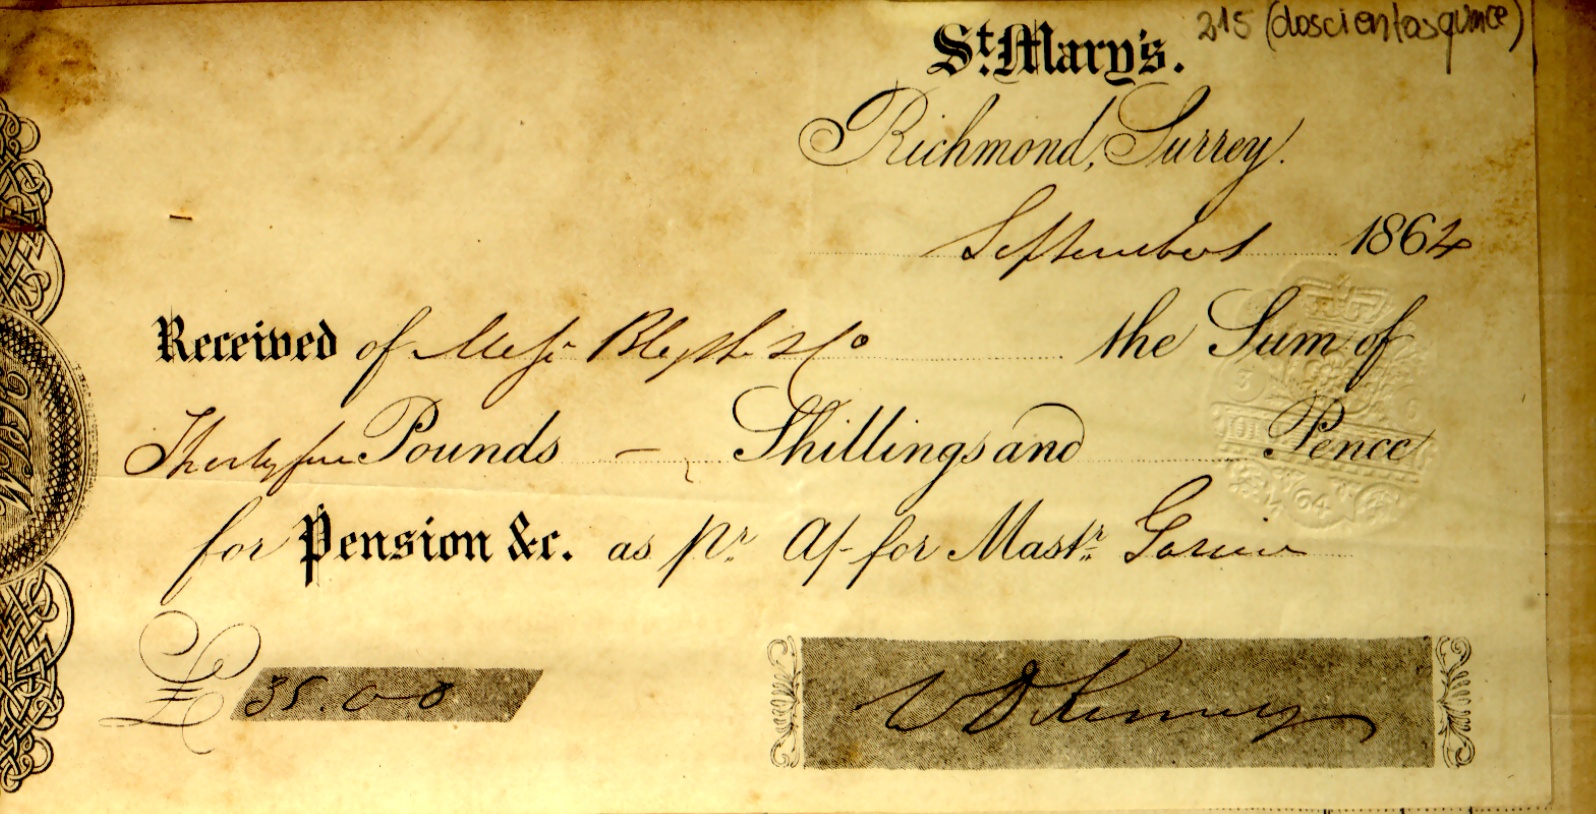 215 (doscientosquince)
St. Mary's.
Richmond, Surrey.
September 1864
Received of Messrs Blyth & Co the Sum of
Thirty five Pounds — Shillings and Pence
for Pension &c. as pr. A/- for Mastr.
£ 35.00
64